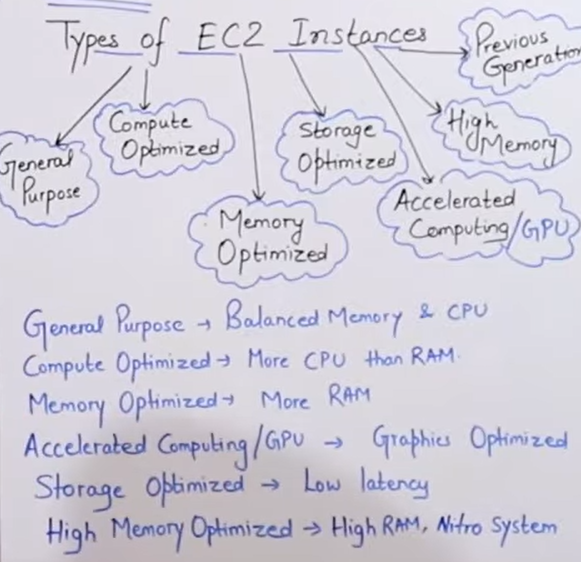 Types of EC2 Instances
Previous
Generation
Compute
Optimized
Storage
Optimized
High
Memory
General
Purpose
Accelerated
Computing/GPU
Memory
Optimized
General Purpose → Balanced Memory & CPU
Compute Optimized → More CPU than RAM.
Memory Optimized → More RAM
Accelerated Computing/GPU → Graphics Optimized
Storage Optimized → Low latency
High Memory Optimized → High RAM, Nitro System